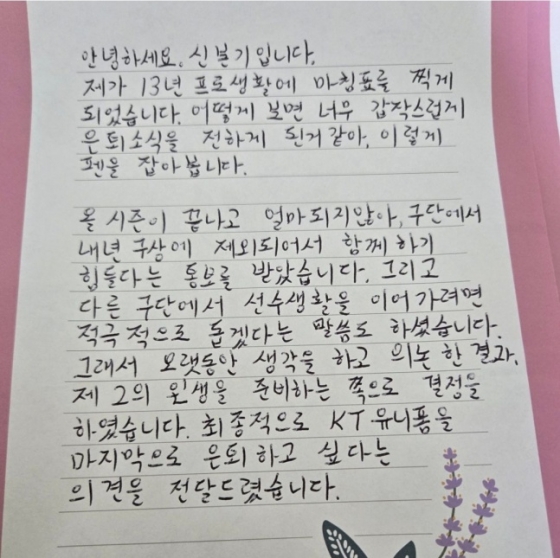 안녕하세요. 신본기입니다.
제가 13년 프로생활에 마침표를 찍게
되었습니다. 어떻게 보면 너무 갑작스럽게
은퇴소식을 전하게 된거 같아, 이렇게
펜을 잡아봅니다.
올 시즌이 끝나고 얼마되지않아, 구단에서
내년 구상에 제외되어서 함께 하기
힘들다는 통보를 받았습니다. 그리고
다른 구단에서 선수생활을 이어가려면
적극적으로 돕겠다는 말씀도 하셨습니다.
그래서 오랫동안 생각을 하고 의논한 결과,
제 2의 인생을 준비하는 쪽으로 결정을
하였습니다. 최종적으로 KT 유니폼을
마지막으로 은퇴하고 싶다는
의견을 전달드렸습니다.